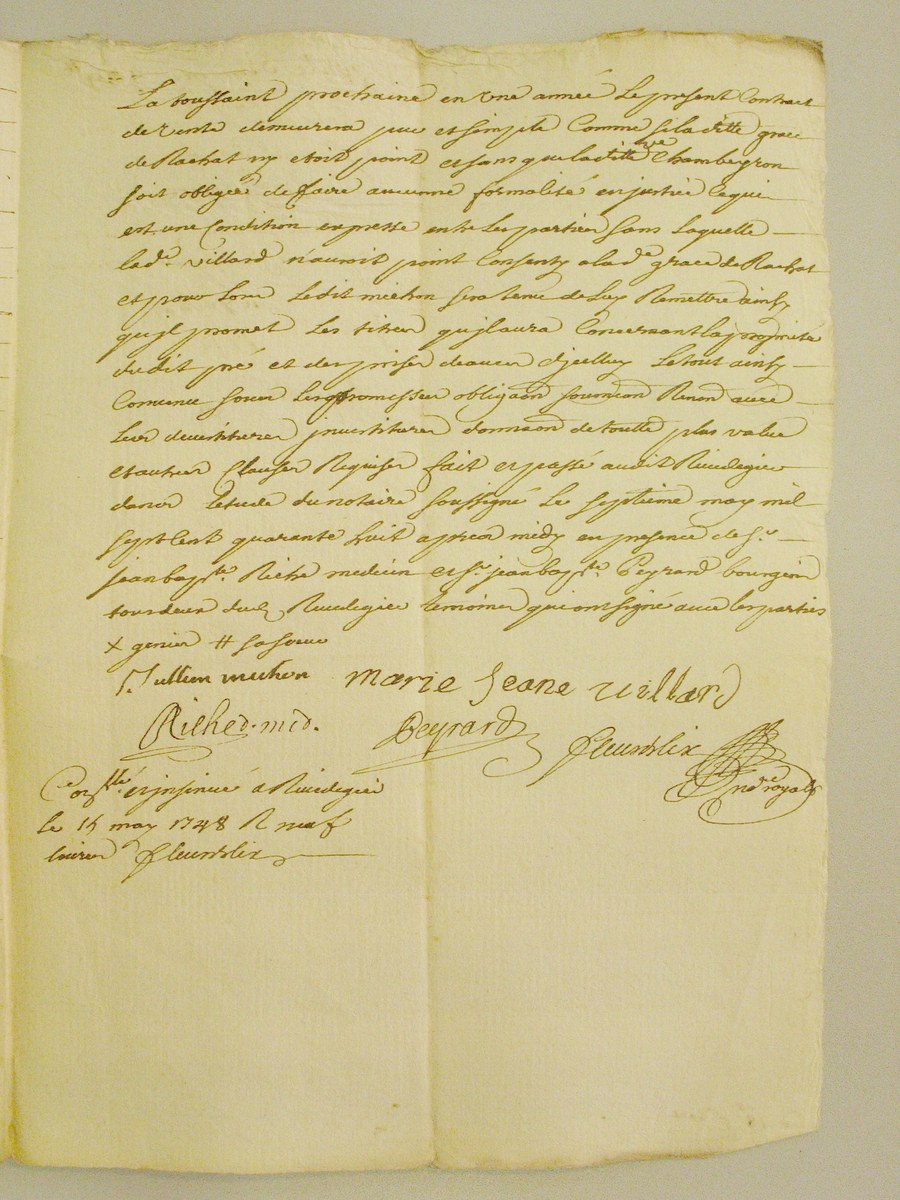 La toussaint prochaine en une année Le present Contract
de vente demeurera pur et simple Comme si laditte grace
de Rachat ny etoit point et sans que laditte ve Chambeyron
soit obligée de faire aucunne formalité en justice Ce qui
est une Condition expresse entre Les parties sans Laquelle
lade. villard n'auroit point Consenty a lade grace de Rachat
et pour Lors Ledit michon sera tenu de Luy Remettre ainsy
qu'jl promet Les titres qu'jl aura Concernant la proprieté
dudit pré et des prises deaues d'jcelluy Le tout ainsy
Convenu sous Les promesses obligaon soumion Renon avec
Les devestitures jnvestitures donnaon de toutte plus value
et autres Clauses Requises fait et passé audit Rivedegier
dans Létude du notaire soussigné Le septieme may mil
sept Cent quarante huit apres midy en presence de sr.
jean bapte. Riche medecin et sr. jean bapte. Peyrard bourgeois
tous deux dud. Rivedegier temoins qui ont signé avec les parties
x genier # sa soeur
Jullien michon Marie Jeane villard
Riche d. med. Peyrard fleurdelix
nore royal
Conllé et jnsinué a Rivedegier
le 15 may 1748 R neuf
livres fleurdelix